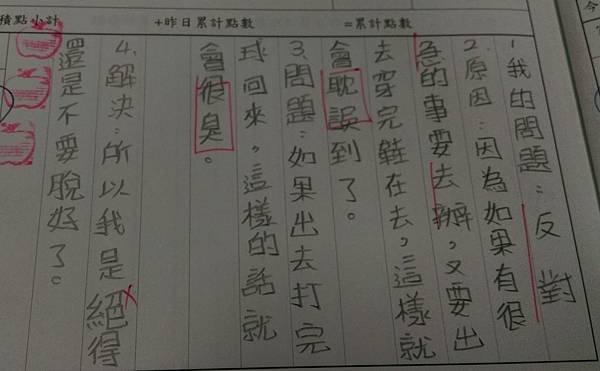 積點小計
+昨日累計點數
=累計點數
今
1.我的問題:反對
2.原因:因為如果有很
急的事要去辦,又要出
去穿完鞋在去,這樣就
會耽誤到了。
3.問題:如果出去打完
球回來,這樣的話就
會很臭。
4.解決:所以我是絕得
還是不要脫好了。